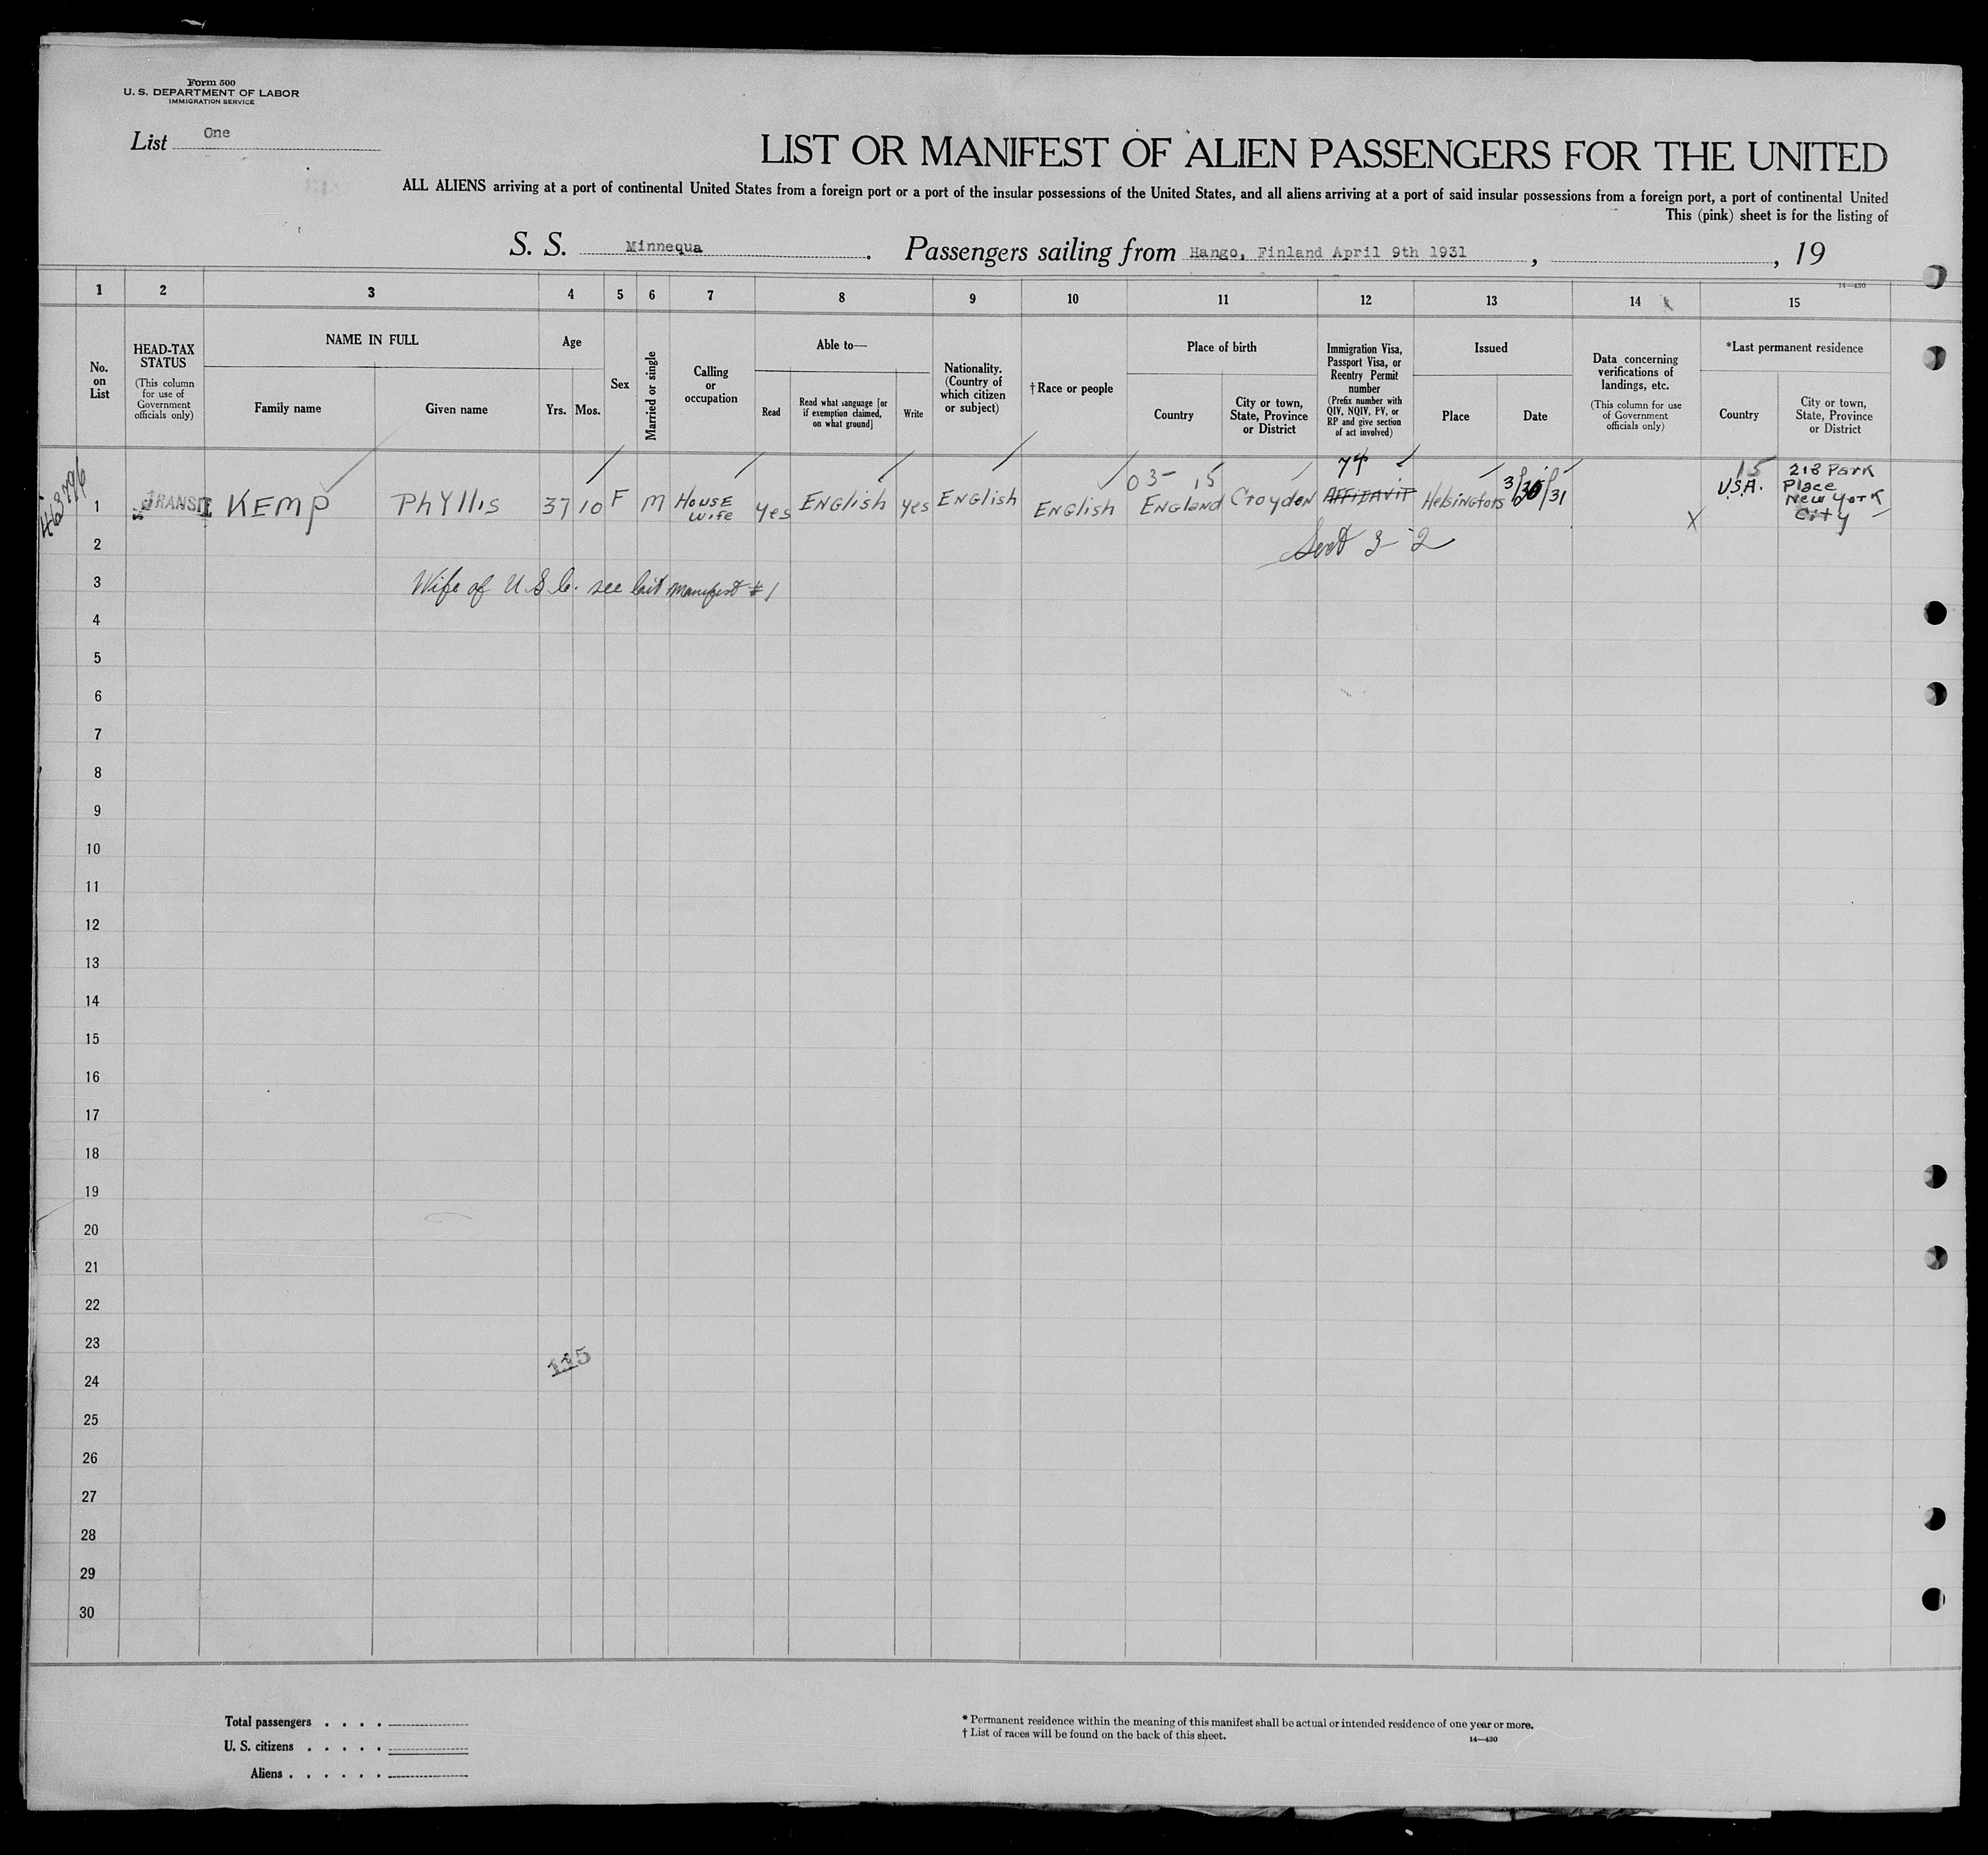 Form 500
U. S. DEPARTMENT OF LABOR
IMMIGRATION SERVICE
List One
LIST OR MANIFEST OF ALIEN PASSENGERS FOR THE UNITED
ALL ALIENS arriving at a port of continental United States from a foreign port or a port of the insular possessions of the United States, and all aliens arriving at a port of said insular possessions from a foreign port, a port of continental United
This (pink) sheet is for the listing of
S. S. Minnequa. Passengers sailing from Hango, Finland April 9th 1931, , 19
14—430
1 2 3 4 5 6 7 8 9 10 11 12 13 14 15
No. on List
HEAD-TAX STATUS
(This column for use of Government officials only)
NAME IN FULL
Family name
Given name
Age
Yrs. Mos.
Sex
Married or single
Calling or occupation
Able to—
Read
Read what language [or if exemption claimed, on what ground]
Write
Nationality. (Country of which citizen or subject)
†Race or people
Place of birth
Country
City or town, State, Province or District
Immigration Visa, Passport Visa, or Reentry Permit number
(Prefix number with QIV, NQIV, PV, or RP and give section of act involved)
Issued
Place
Date
Data concerning verifications of landings, etc.
(This column for use of Government officials only)
*Last permanent residence
Country
City or town, State, Province or District
03- 15 74 15
1 TRANSIT KEMP PhYllis 37 10 F M HOUSE WIFE Yes ENGlish Yes ENGlish ENGlish ENGland Croydon AFFIDAVIT Helsingfors 3/30/31 X U.S.A. 213 Park Place New York City
2
3 Wife of U.S.C. see last manifest #1
4
5
6
7
8
9
10
11
12
13
14
15
16
17
18
19
20
21
22
23
115
24
25
26
27
28
29
30
Total passengers . . . .
U. S. citizens . . . . .
Aliens . . . . . .
* Permanent residence within the meaning of this manifest shall be actual or intended residence of one year or more.
† List of races will be found on the back of this sheet.
14—430